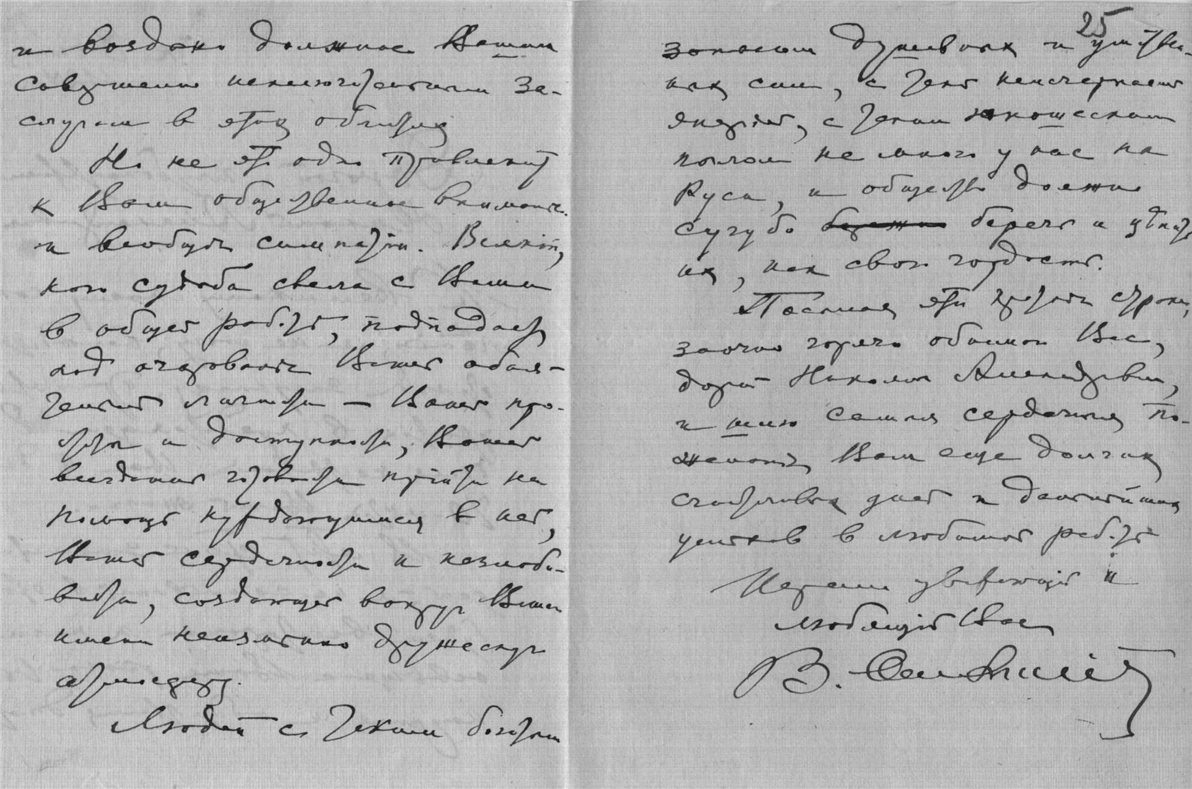 и воздано должное Вашим
совершенно исключительным за-
слугам в этой области
Но не это одно привлекает
к Вам общественное внимание
и всеобщие симпатии. Всякий,
кого судьба свела с Вами
в общей работе, подпадает
под очарование Вашей обая-
тельной личности — Вашей про-
стоты и доступности, Вашей
всегдашней готовности прийти на
помощь нуждающимся в ней,
Вашей сердечности и незлоби-
вости, создающей вокруг Вашего
имени неизменно дружескую
атмосферу.
Людей с таким богатым
25
запасом душевных и умствен-
ных сил, с такой неисчерпаемой
энергией, с таким юношеским
пылом не много у нас на
Руси, и общество должно
сугубо беречь и ценить
их, как свою гордость.
Посылая эти строки,
заочно горячо обнимаю Вас,
дорогой Николай Александрович,
и шлю самые сердечные по-
желания Вам еще долгих
счастливых дней и дальнейших
успехов в любимой работе
Искренно уважающий и
любящий Вас
В.